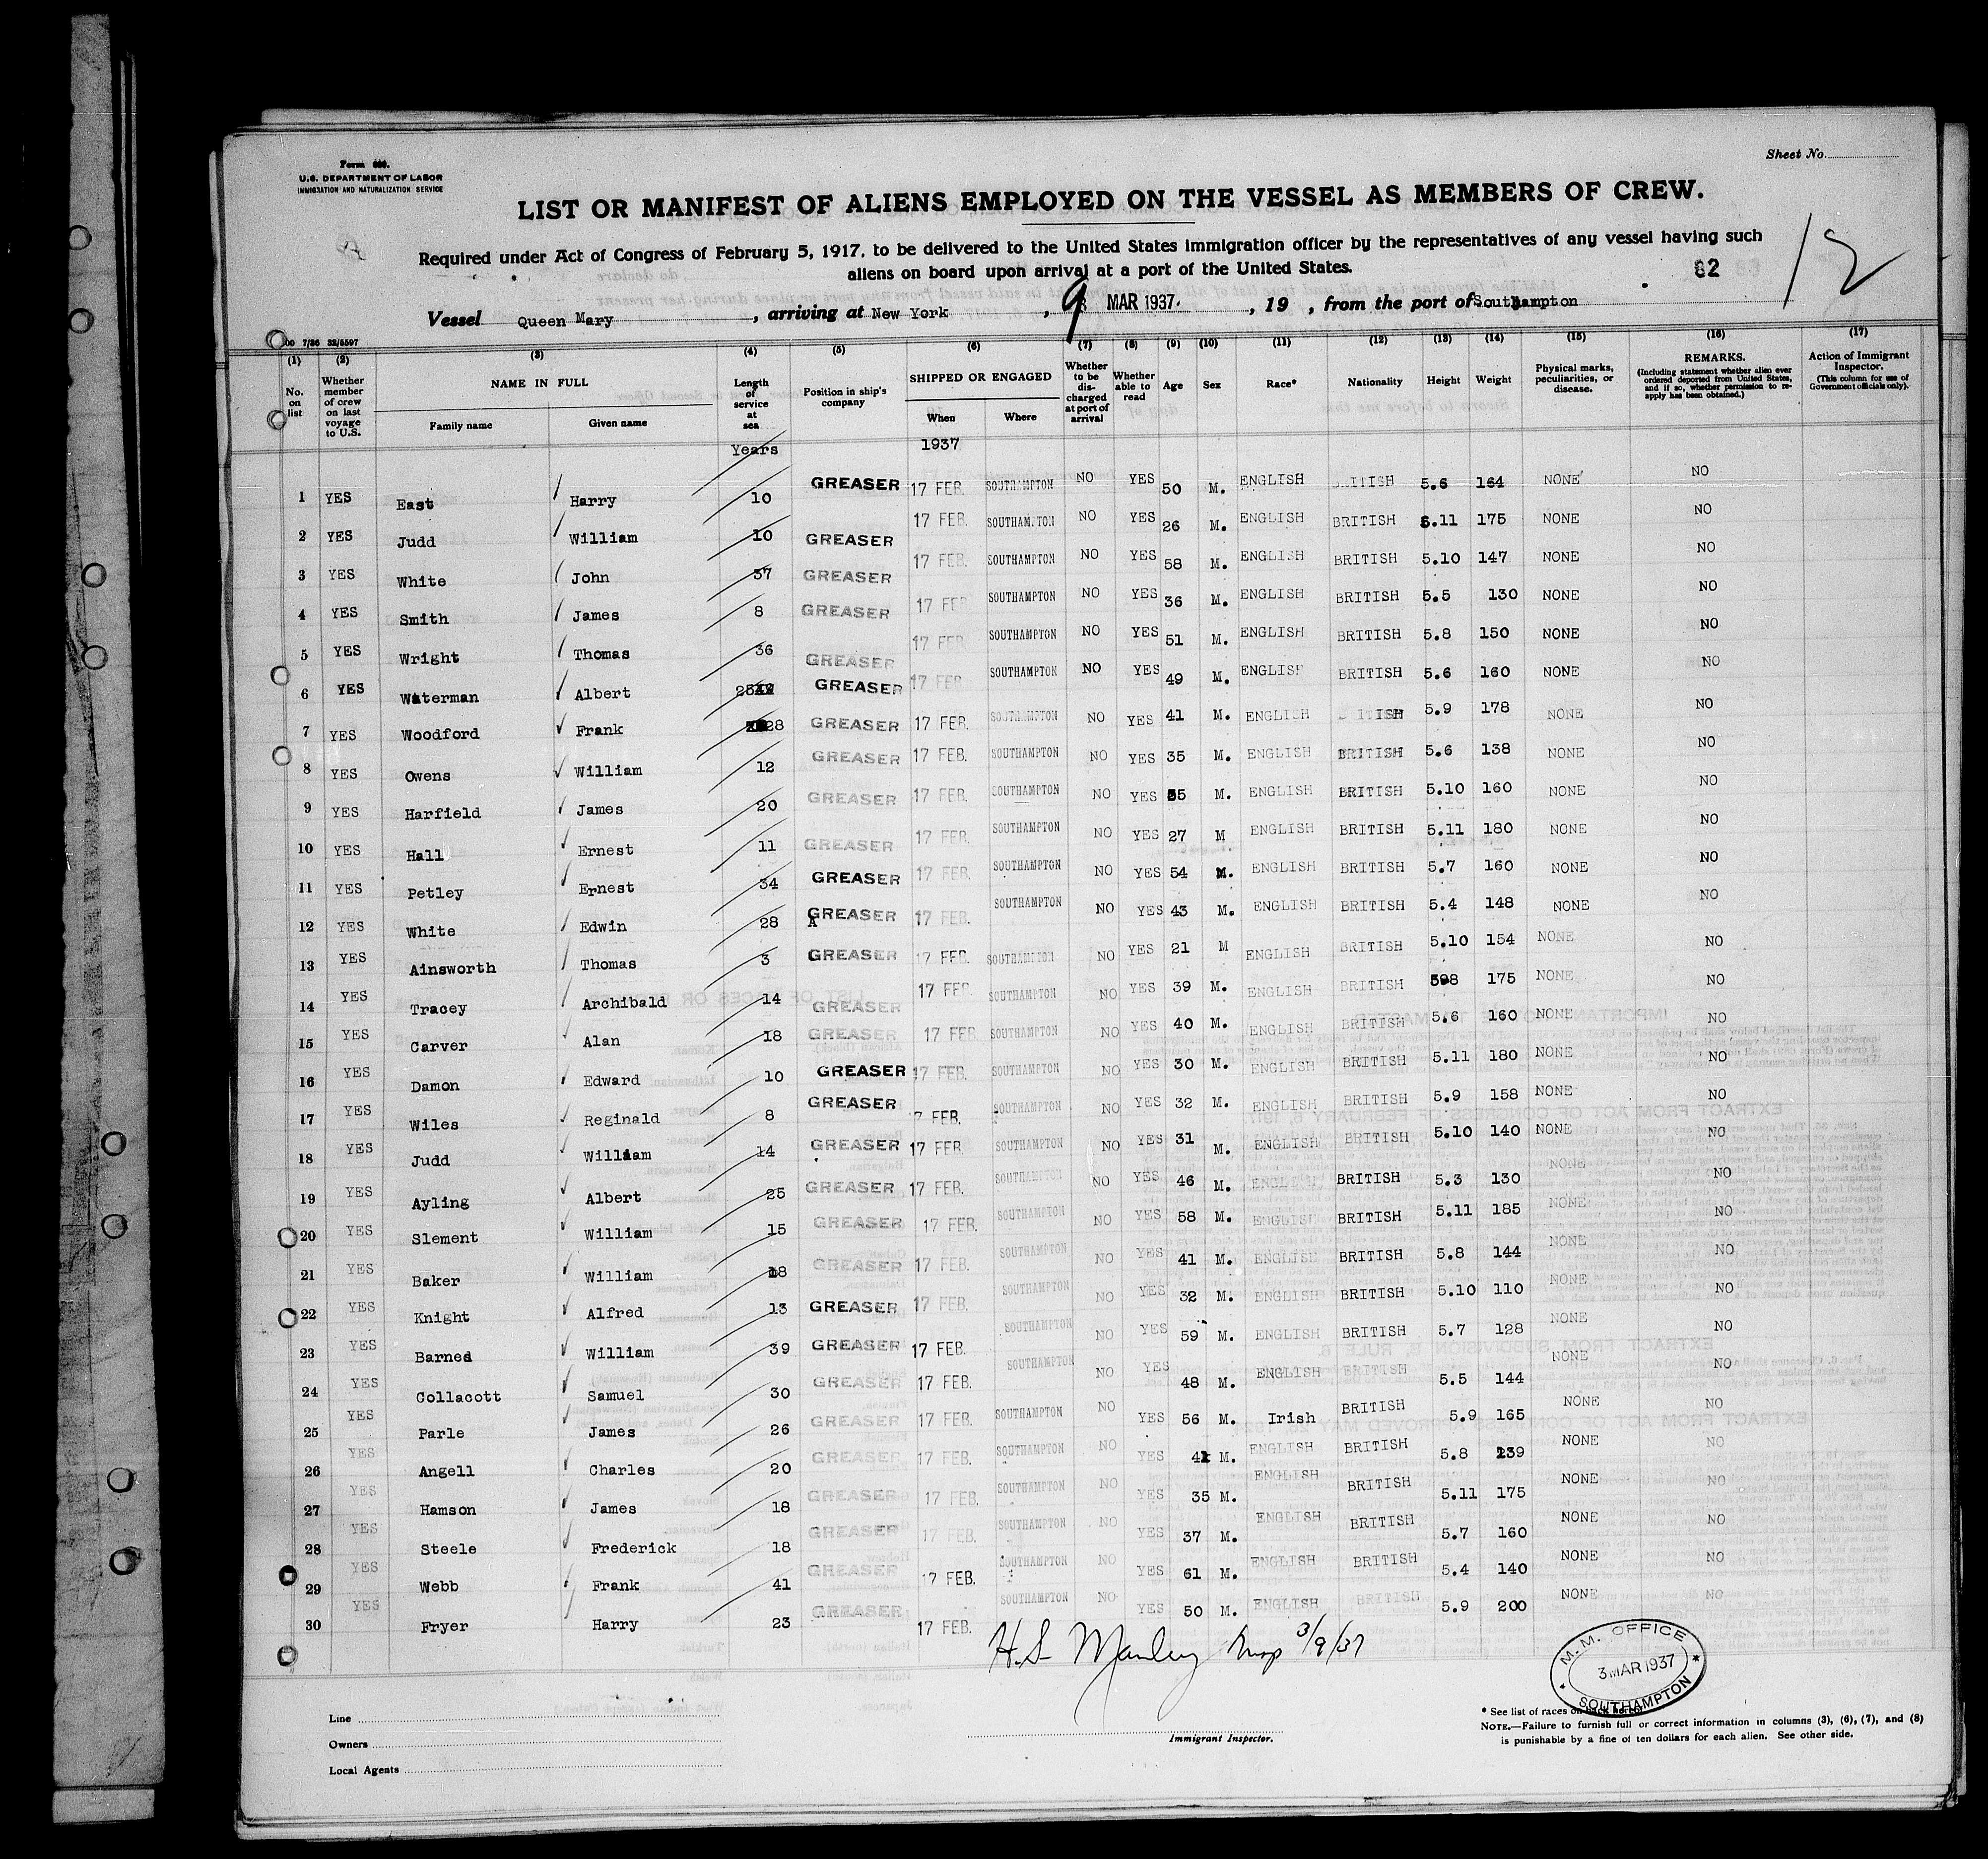 Sheet No.
Form 680.
U.S. DEPARTMENT OF LABOR
IMMIGRATION AND NATURALIZATION SERVICE
LIST OR MANIFEST OF ALIENS EMPLOYED ON THE VESSEL AS MEMBERS OF CREW.
Required under Act of Congress of February 5, 1917, to be delivered to the United States immigration officer by the representatives of any vessel having such
aliens on board upon arrival at a port of the United States.
82
12
Vessel Queen Mary, arriving at New York, 9 MAR 1937., 19 , from the port of Southampton
7/36 33/5597
(1) (2) (3) (4) (5) (6) (7) (8) (9) (10) (11) (12) (13) (14) (15) (16) (17)
No. on list
Whether member of crew on last voyage to U.S.
NAME IN FULL
Family name
Given name
Length of service at sea
Position in ship's company
SHIPPED OR ENGAGED
When
Where
Whether to be discharged at port of arrival
Whether able to read
Age
Sex
Race*
Nationality
Height
Weight
Physical marks, peculiarities, or disease.
REMARKS.
(Including statement whether alien ever ordered deported from United States, and if so, whether permission to reapply has been obtained.)
Action of Immigrant Inspector.
(This column for use of Government officials only).
Years 1937
1 YES East Harry 10 GREASER 17 FEB. SOUTHAMPTON NO YES 50 M. ENGLISH BRITISH 5.6 164 NONE NO
2 YES Judd William 10 GREASER 17 FEB. SOUTHAMPTON NO YES 26 M. ENGLISH BRITISH 5.11 175 NONE NO
3 YES White John 37 GREASER 17 FEB. SOUTHAMPTON NO YES 58 M. ENGLISH BRITISH 5.10 147 NONE NO
4 YES Smith James 8 GREASER 17 FEB SOUTHAMPTON NO YES 36 M. ENGLISH BRITISH 5.5 130 NONE NO
5 YES Wright Thomas 36 GREASER 17 FEB. SOUTHAMPTON NO YES 51 M. ENGLISH BRITISH 5.8 150 NONE NO
6 YES Waterman Albert 25 GREASER 17 FEB SOUTHAMPTON NO YES 49 M. ENGLISH BRITISH 5.6 160 NONE NO
7 YES Woodford Frank 28 GREASER 17 FEB. SOUTHAMPTON NO YES 41 M. ENGLISH BRITISH 5.9 178 NONE NO
8 YES Owens William 12 GREASER 17 FEB. SOUTHAMPTON NO YES 35 M. ENGLISH BRITISH 5.6 138 NONE NO
9 YES Harfield James 20 GREASER 17 FEB. SOUTHAMPTON NO YES 35 M. ENGLISH BRITISH 5.10 160 NONE NO
10 YES Hall Ernest 11 GREASER 17 FEB. SOUTHAMPTON NO YES 27 M ENGLISH BRITISH 5.11 180 NONE NO
11 YES Petley Ernest 34 GREASER 17 FEB. SOUTHAMPTON NO YES 54 M. ENGLISH BRITISH 5.7 160 NONE NO
12 YES White Edwin 28 A GREASER 17 FEB. SOUTHAMPTON NO YES 43 M. ENGLISH BRITISH 5.4 148 NONE NO
13 YES Ainsworth Thomas 3 GREASER 17 FEB. SOUTHAMPTON NO YES 21 M ENGLISH BRITISH 5.10 154 NONE NO
14 YES Tracey Archibald 14 GREASER 17 FEB. SOUTHAMPTON NO YES 39 M. ENGLISH BRITISH 5.8 175 NONE NO
15 YES Carver Alan 18 GREASER 17 FEB. SOUTHAMPTON NO YES 40 M. ENGLISH BRITISH 5.6 160 NONE NO
16 YES Damon Edward 10 GREASER 17 FEB. SOUTHAMPTON NO YES 30 M. ENGLISH BRITISH 5.11 180 NONE NO
17 YES Wiles Reginald 8 GREASER 7 FEB. SOUTHAMPTON NO YES 32 M. ENGLISH BRITISH 5.9 158 NONE NO
18 YES Judd William 14 GREASER 17 FEB. SOUTHAMPTON NO YES 31 M. ENGLISH BRITISH 5.10 140 NONE NO
19 YES Ayling Albert 25 GREASER 17 FEB. SOUTHAMPTON NO YES 46 M. ENGLISH BRITISH 5.3 130 NONE NO
20 YES Slement William 15 GREASER 17 FEB. SOUTHAMPTON NO YES 58 M. ENGLISH BRITISH 5.11 185 NONE NO
21 YES Baker William 18 GREASER 17 FEB. SOUTHAMPTON NO YES 41 M. ENGLISH BRITISH 5.8 144 NONE NO
22 YES Knight Alfred 13 GREASER 17 FEB. SOUTHAMPTON NO YES 32 M. ENGLISH BRITISH 5.10 110 NONE NO
23 YES Barned William 39 GREASER 17 FEB. SOUTHAMPTON NO YES 59 M. ENGLISH BRITISH 5.7 128 NONE NO
24 YES Collacott Samuel 30 GREASER 17 FEB. SOUTHAMPTON NO YES 48 M. ENGLISH BRITISH 5.5 144 NONE NO
25 YES Parle James 26 GREASER 17 FEB. SOUTHAMPTON NO YES 56 M. Irish BRITISH 5.9 165 NONE NO
26 YES Angell Charles 20 GREASER 17 FEB. SOUTHAMPTON NO YES M. ENGLISH BRITISH 5.8 139 NONE NO
27 YES Hamson James 18 GREASER 17 FEB. SOUTHAMPTON NO YES 35 M. ENGLISH BRITISH 5.11 175 NONE NO
28 YES Steele Frederick 18 GREASER 17 FEB. SOUTHAMPTON NO YES 37 M. ENGLISH BRITISH 5.7 160 NONE NO
29 YES Webb Frank 41 GREASER 17 FEB. SOUTHAMPTON NO YES 61 M. ENGLISH BRITISH 5.4 140 NONE NO
30 YES Fryer Harry 23 GREASER 17 FEB. SOUTHAMPTON NO YES 50 M. ENGLISH BRITISH 5.9 200 NONE NO
H.S. Manley 3/9/37
M.M. OFFICE
3 MAR 1937
SOUTHAMPTON
Line
Owners
Local Agents
Immigrant Inspector.
* See list of races on back hereof
NOTE.—Failure to furnish full or correct information in columns (3), (6), (7), and (8)
is punishable by a fine of ten dollars for each alien. See other side.